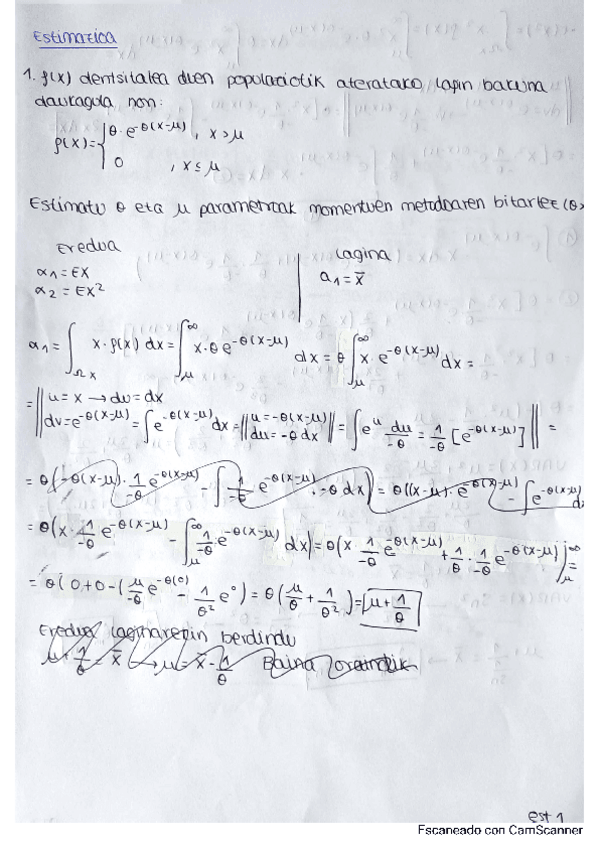 Estimazioa
1. f(x) dentsitatea duen populaziotik ateratako lagin bakuna
daukagula non:
f(x)={θ·e^-θ(x-μ), x>μ
0 , x≤μ
Estimatu θ eta μ parametroak momentuen metodoaren bitartez (θ>
Eredua
Lagina
α1=EX
a1=x̄
α2=EX²
α1=∫Ωx x·f(x) dx=∫μ^∞ x·θe^-θ(x-μ) dx=θ∫μ^∞ x·e^-θ(x-μ)dx=
=||u=x→du=dx
dv=e^-θ(x-μ)=∫e^-θ(x-μ)dx=||u=-θ(x-μ) du=-θdx||=∫e^u du/-θ=1/-θ[e^-θ(x-μ)]||=
=θ(-θ(x-μ)·1/-θ e^-θ(x-μ) - ∫1/-θ e^-θ(x-μ)·-θdx)=θ((x-μ)·e^-θ(x-μ) - ∫e^-θ(x-μ)d
=θ(x·1/-θ e^-θ(x-μ) - ∫μ^∞ 1/-θ·e^-θ(x-μ)dx)=θ(x·1/-θ e^-θ(x-μ)+1/θ·1/-θ e^-θ(x-μ))|μ^∞=
=θ(0+0-(μ/-θ e^-θ(0) - 1/θ² e^0)=θ(μ/θ+1/θ²)=μ+1/θ
Eredua laginarekin berdindu
μ+1/θ=x̄→μ=x̄-1/θ Baina oraindik
est 1
Escaneado con CamScanner